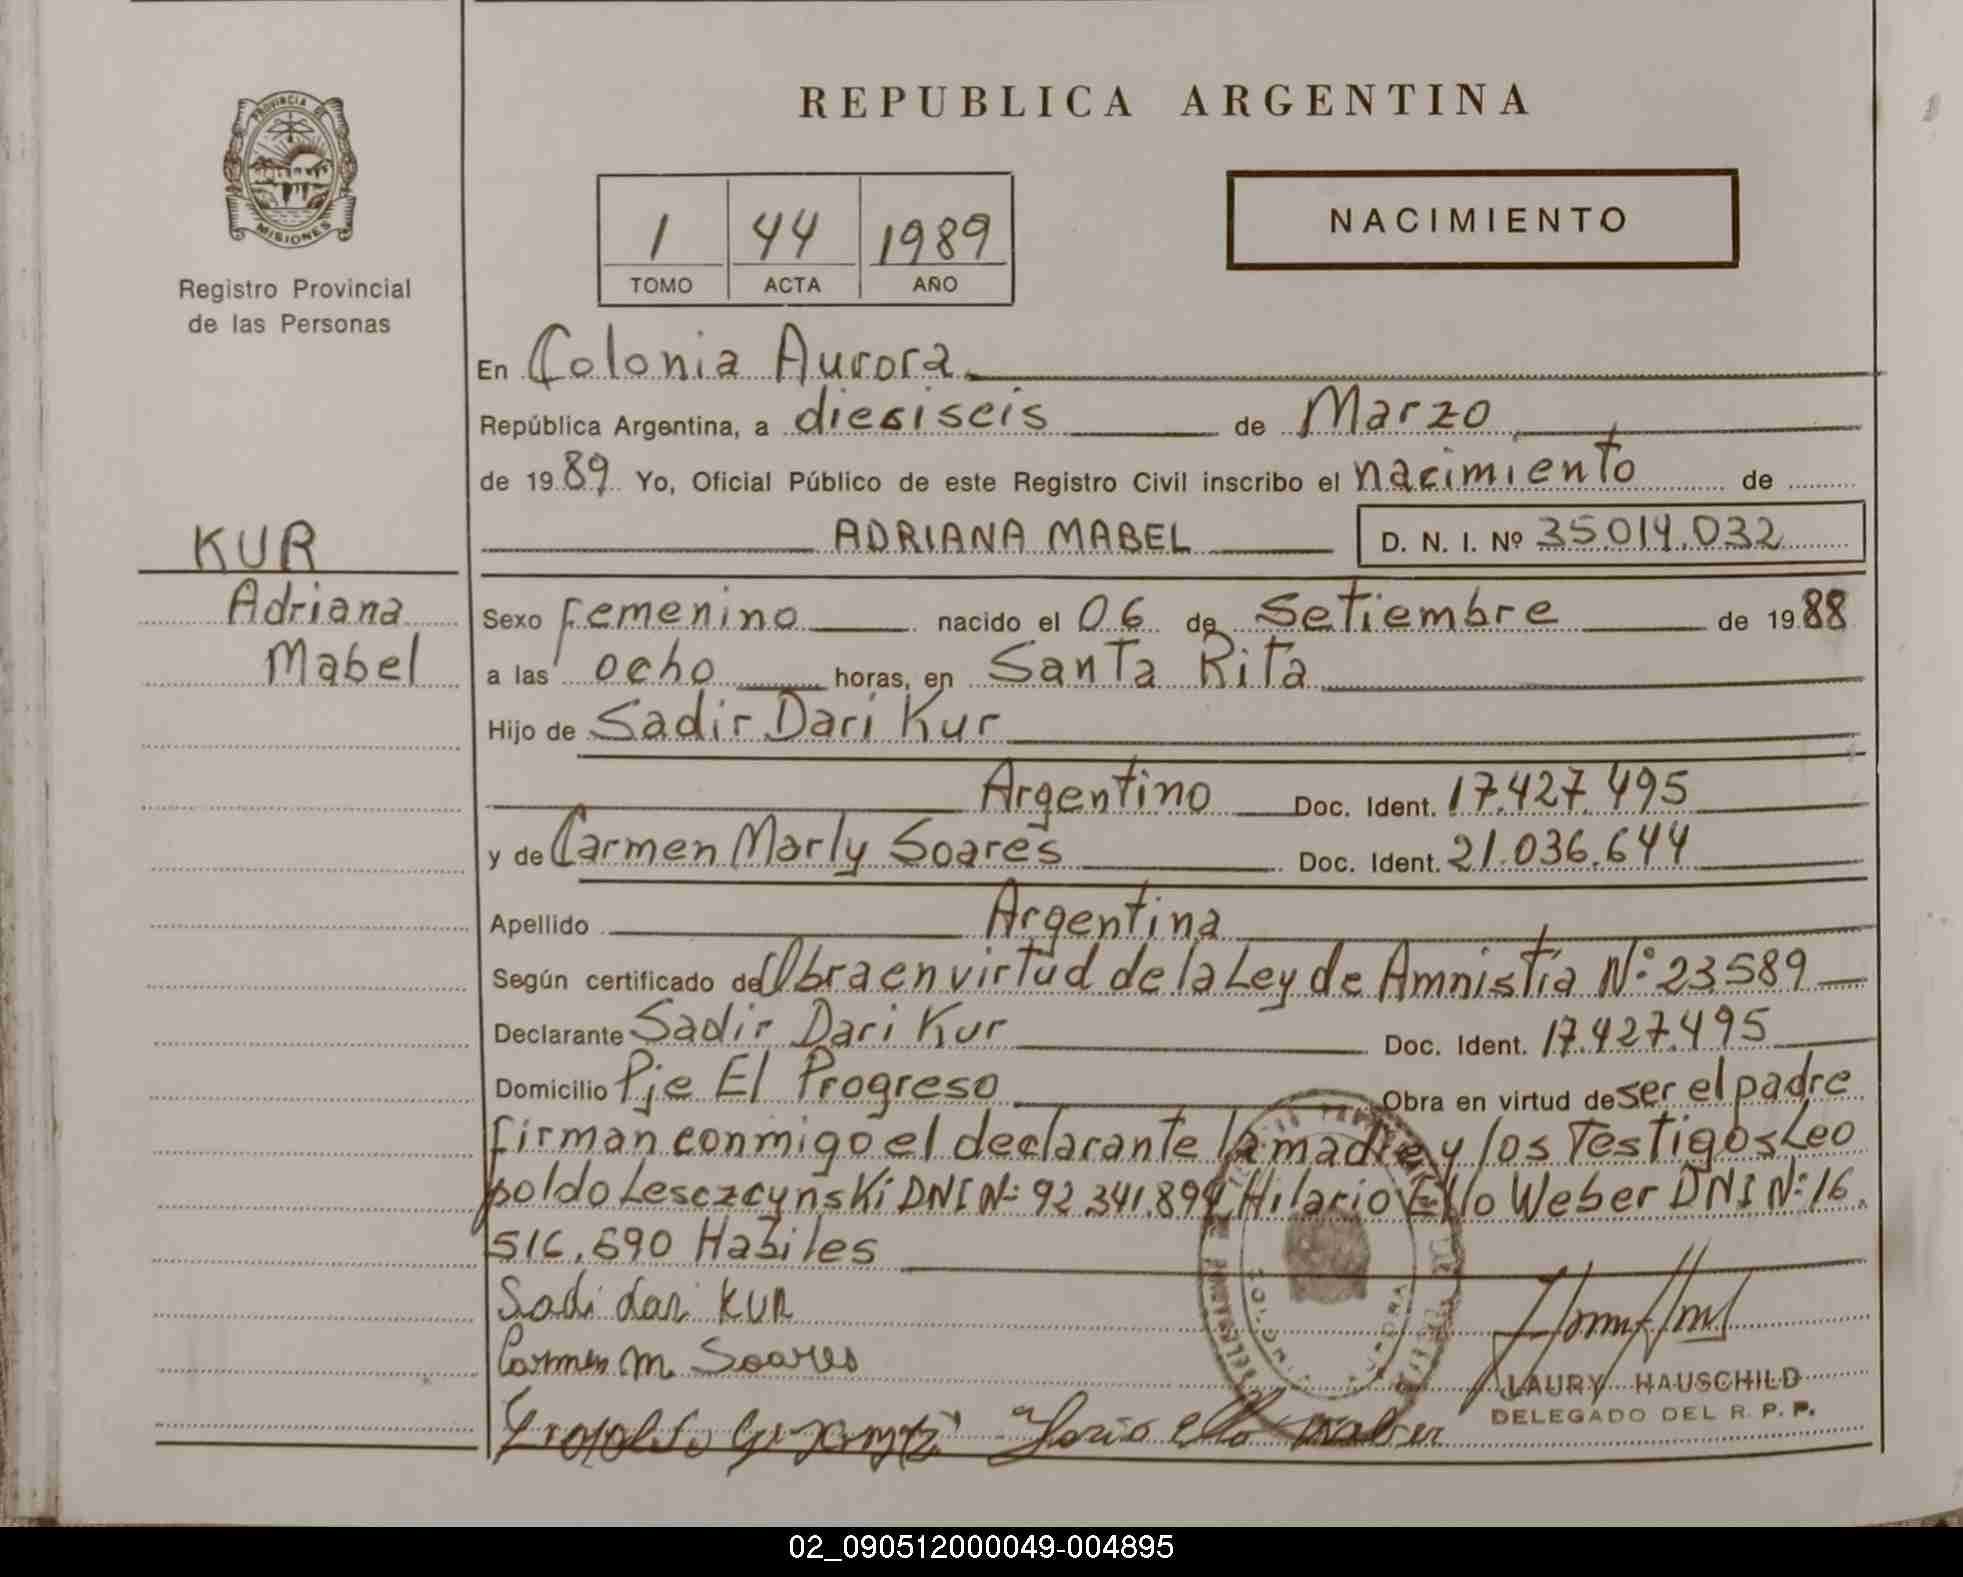 PROVINCIA DE
MISIONES
Registro Provincial
de las Personas
KUR
Adriana
Mabel
REPUBLICA ARGENTINA
1 44 1989
TOMO ACTA AÑO
NACIMIENTO
En Colonia Aurora
República Argentina, a diesiseis de Marzo
de 1989 Yo, Oficial Público de este Registro Civil inscribo el nacimiento de
ADRIANA MABEL D. N. I. Nº 35.014.032
Sexo Femenino nacido el 06 de Setiembre de 1988
a las ocho horas, en Santa Rita
Hijo de Sadir Dari Kur
Argentino Doc. Ident. 17.427.495
y de Carmen Marly Soares Doc. Ident. 21.036.644
Apellido Argentina
Según certificado de Obra en virtud de la Ley de Amnistía Nº 23.589
Declarante Sadir Dari Kur Doc. Ident. 17.427.495
Domicilio Pje El Progreso Obra en virtud de ser el padre
firman conmigo el declarante la madre y los Testigos Leo
poldo Lesczcynski DNI Nº 92.341.894 Hilario Ello Weber DNI Nº 16.
516.690 Habiles
Sadi dari KUR
Carmen M. Soares
LAURY HAUSCHILD
DELEGADO DEL R. P. P.
02_090512000049-004895